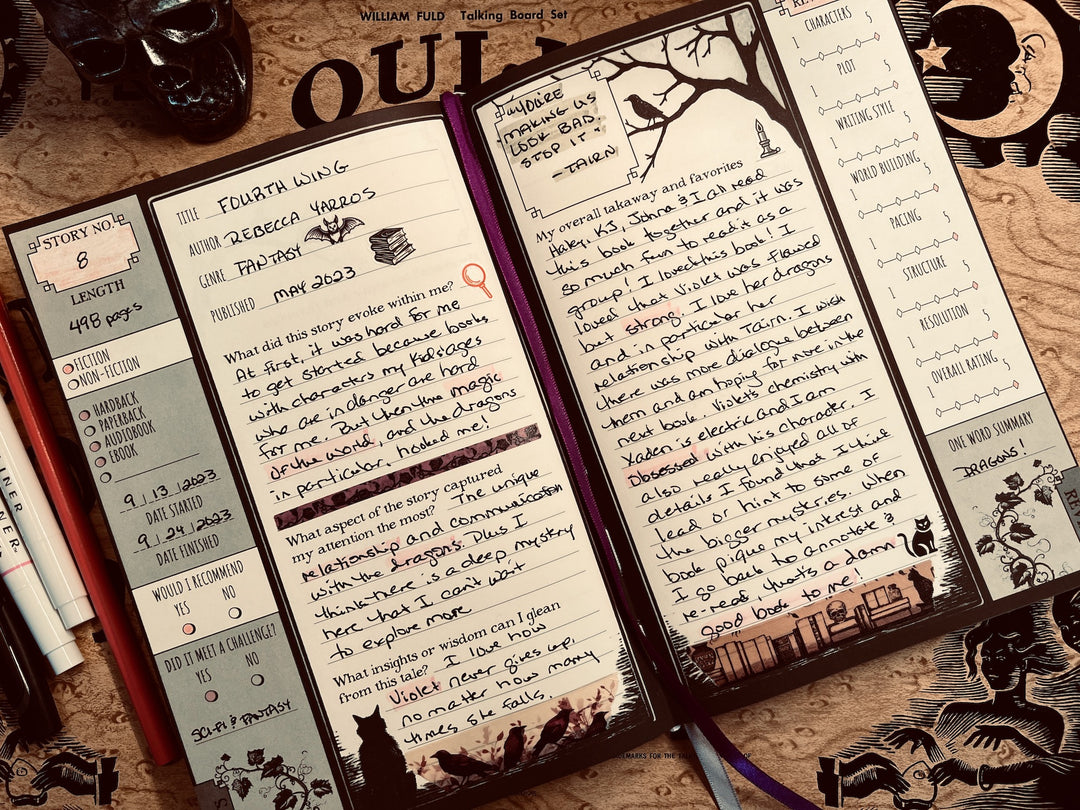 WILLIAM FULD Talking Board Set
OUIJ
STORY NO.
8
LENGTH
498 pages
FICTION
NON-FICTION
HARDBACK
PAPERBACK
AUDIOBOOK
EBOOK
9 | 13 | 2023
DATE STARTED
9 | 24 | 2023
DATE FINISHED
WOULD I RECOMMEND
YES NO
DID IT MEET A CHALLENGE?
YES NO
SCI-FI & FANTASY
TITLE FOURTH WING
AUTHOR REBECCA YARROS
GENRE FANTASY
PUBLISHED MAY 2023
What did this story evoke within me?
At first, it was hard for me
to get started because books
with characters my kids ages
who are in danger are hard
for me. But then the magic
of the world, and the dragons
in particular, hooked me!
What aspect of the story captured
my attention the most? The unique
relationship and communication
with the dragons. Plus I
think there is a deep mystery
here that I can't wait
to explore more
What insights or wisdom can I glean
from this tale? I love how
Violet never gives up,
no matter how many
times she falls.
"YOU'RE
MAKING US
LOOK BAD.
STOP IT"
- TAIRN
My overall takaway and favorites
Haley, KJ, Johna & I all read
this book together and it was
so much fun to read it as a
group! I loved this book! I
loved that Violet was flawed
but strong. I love her dragons
and in particular her
relationship with Tairn. I wish
there was more dialogue between
them and am hoping for more in the
next book. Violet's chemistry with
Xaden is electric and I am
Obsessed with his character. I
also really enjoyed all of
details I found that I think
lead or hint to some of
the bigger mysteries. When
book pique my interest and
I go back to annotate &
re-read, that's a damn
good book to me!
CHARACTERS
1 5
PLOT
1 5
WRITING STYLE
1 5
WORLD BUILDING
1 5
PACING
1 5
STRUCTURE
1 5
RESOLUTION
1 5
OVERALL RATING
1 5
ONE WORD SUMMARY
DRAGONS!